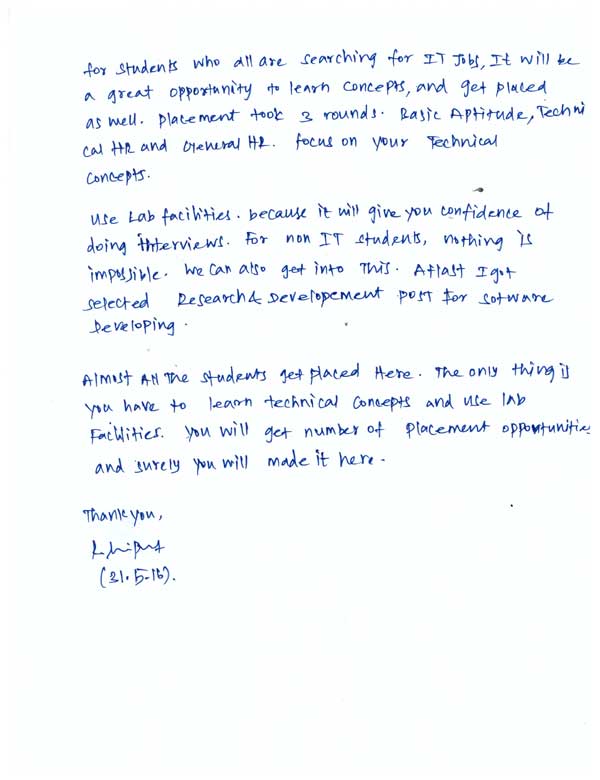 for students who all are searching for IT Jobs, It will be
a great opportunity to learn concepts, and get placed
as well. Placement took 3 rounds. Basic Aptitude, Techni
cal HR and General HR. focus on your Technical
concepts.
Use Lab facilities. because it will give you confidence of
doing interviews. For non IT students, nothing is
impossible. We can also get into This. Atlast I got
selected Research & Developement post for sotware
Developing.
Almost All The students get placed Here. The only thing is
you have to learn technical concepts and use lab
Facilities. you will get number of placement opportunities
and surely you will made it here.
Thank you,
(31.5.16).